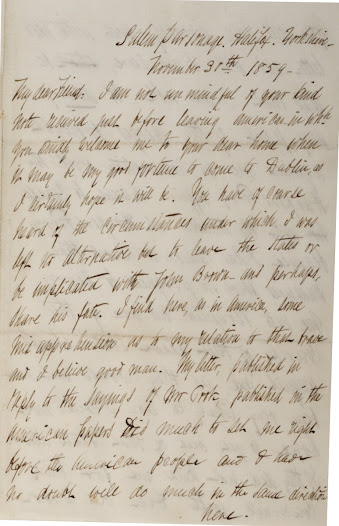 Salem Parsonage. Halifax. Yorkshire.
November 30th 1859.
My dear Friend: I am not unmindful of your kind
note received just before leaving America in which
you kindly welcome me to your dear home when
it may be my good fortune to come to Dublin, as
I certainly hope it will be. You have of course
heard of the circumstances under which I was
left no alternative but to leave the States or
be implicated with John Brown and perhaps,
share his fate. I find here, as in America, some
misapprehension as to my relation to that brave
and I believe good man. My letter, published in
reply to the sayings of Mr Cook, published in the
American papers did much to set me right
before the American people and I have
no doubt will do much in the same direction
here.